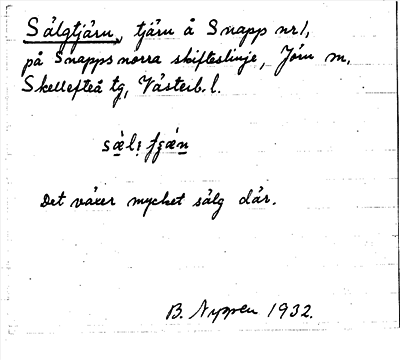 Sälgtjärn, tjärn å Snapp nr 1,
på Snapps norra skifteslinje, Jörn sn,
Skellefteå tg, Västerb. l.
Det växer mycket sälg där.
B. Nyppen 1932.